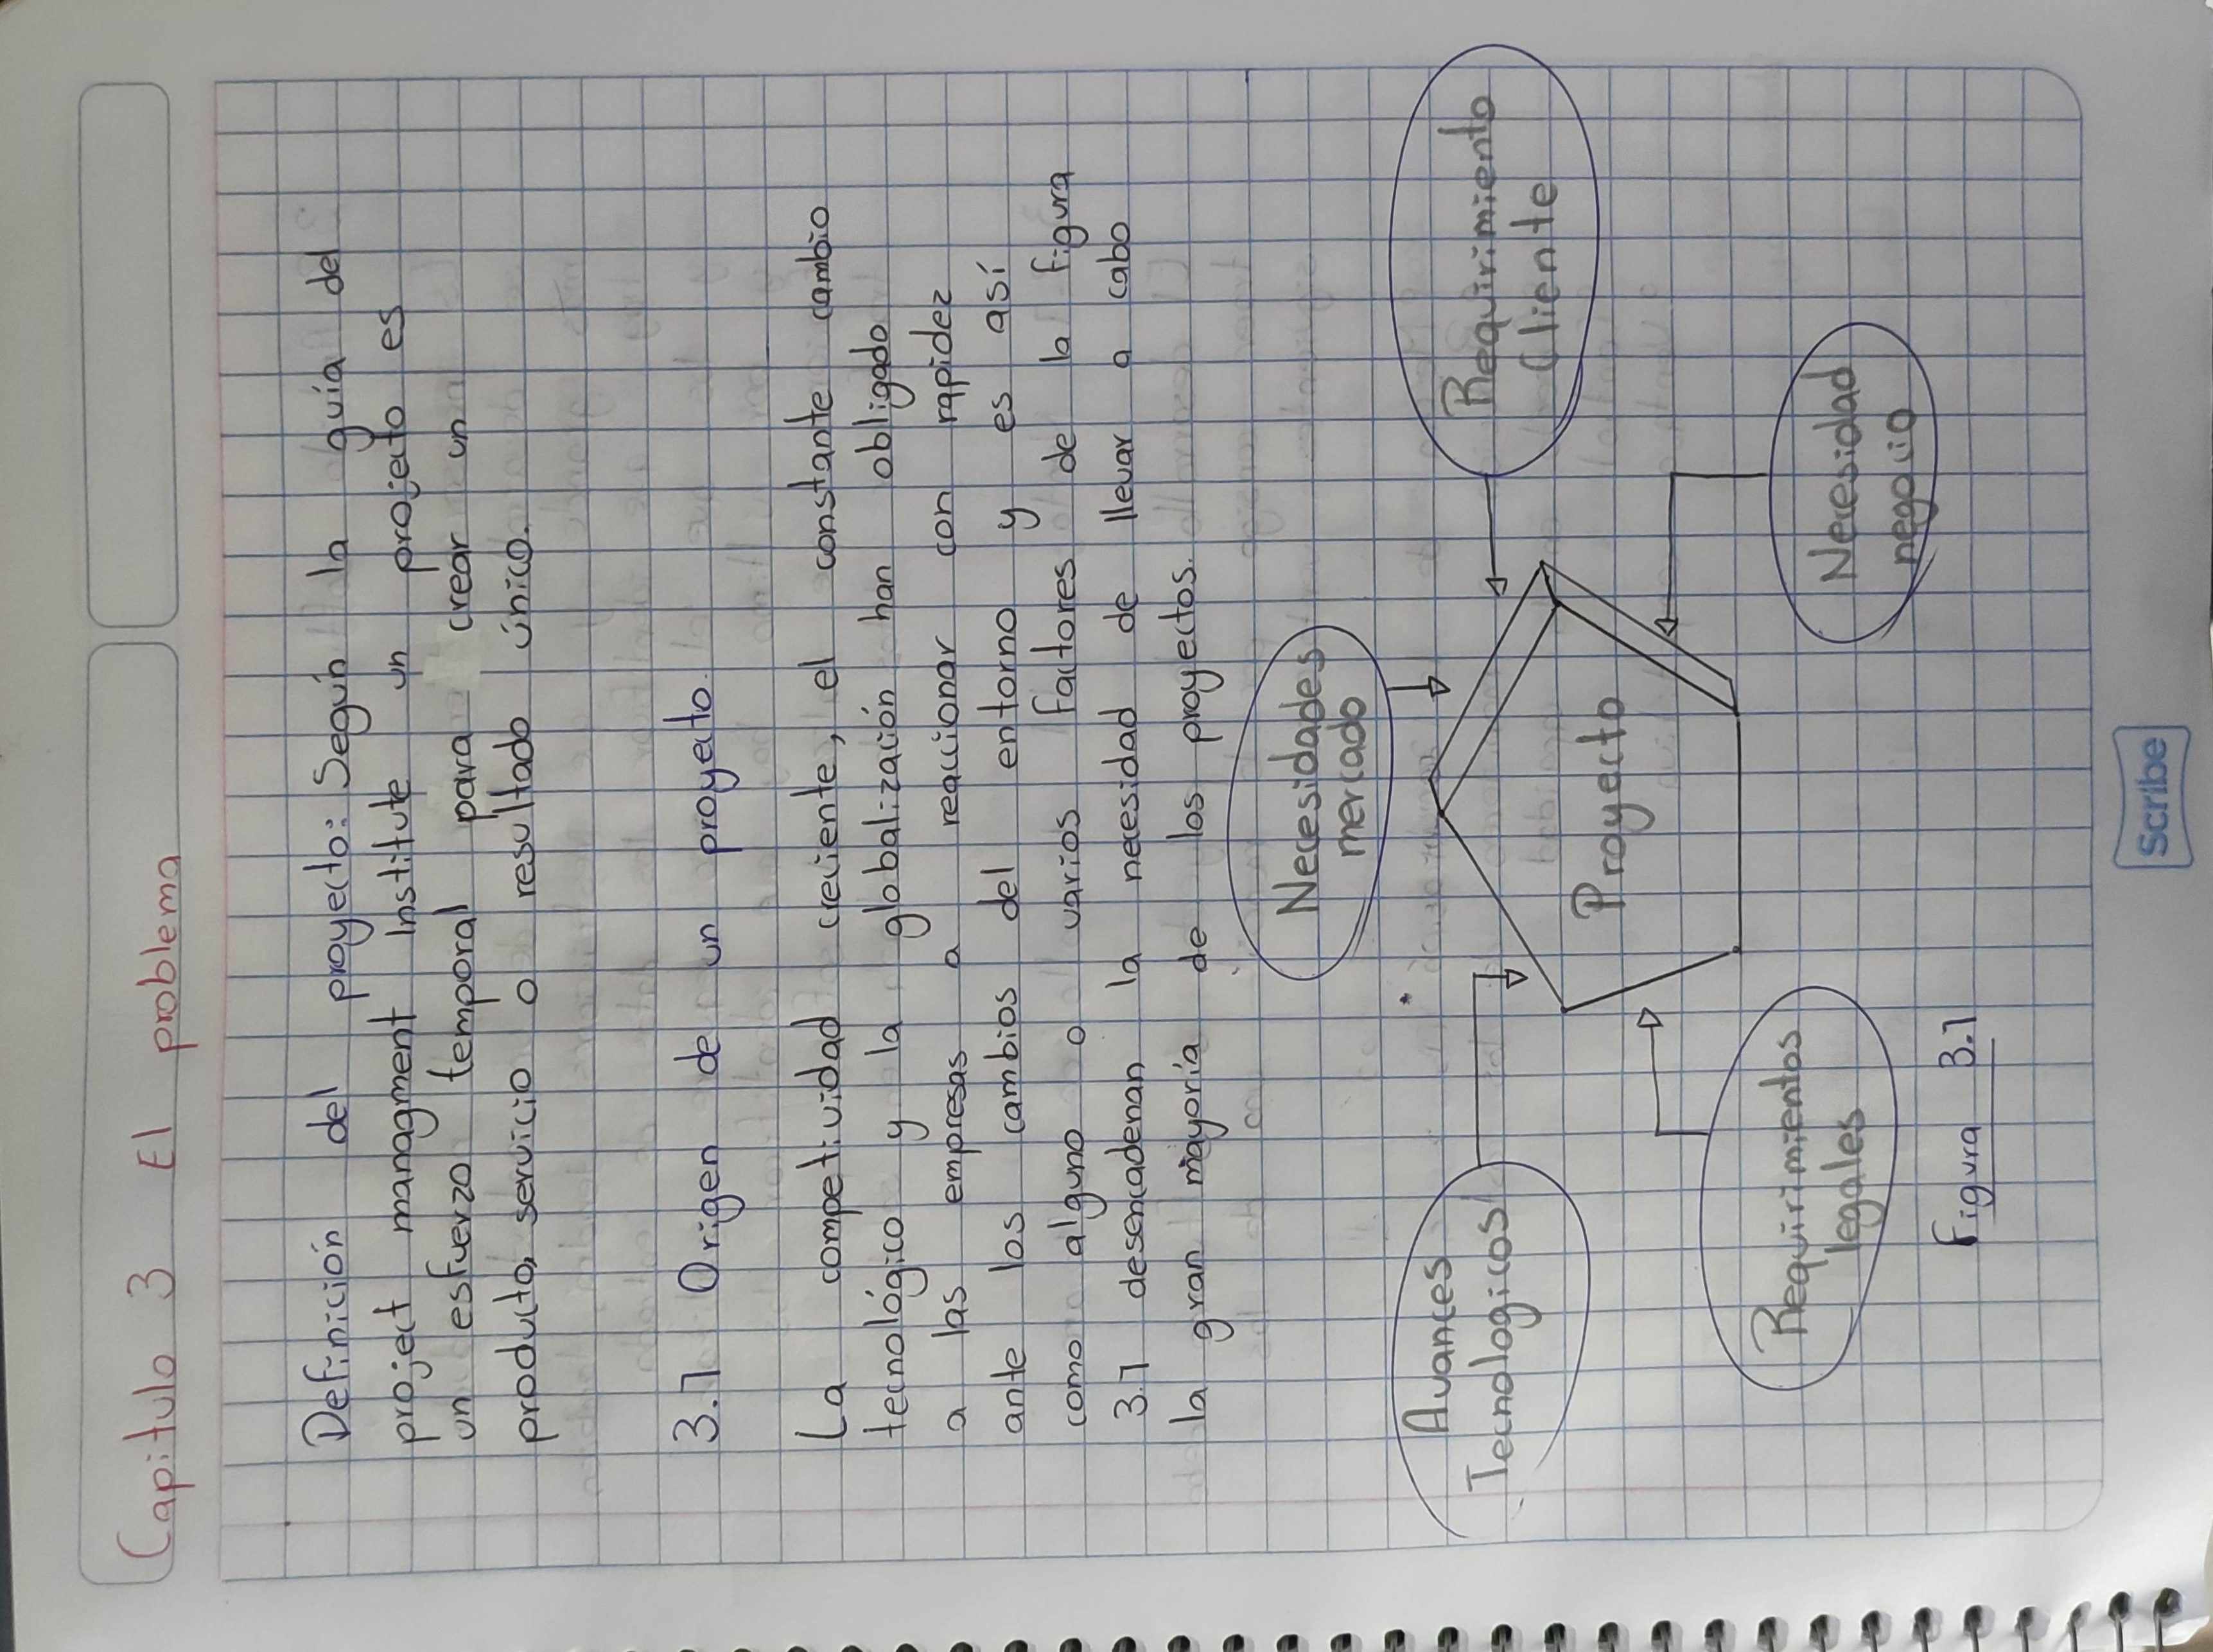 Capitulo 3 El problema
Definición del proyecto: Según la guía del
project managment institute un projecto es
un esfuerzo temporal para crear un
producto, servicio o resultado único.
3.1 Origen de un proyecto.
La competividad creciente, el constante cambio
tecnológico y la globalización han obligado
a las empresas a reaccionar con rapidez
ante los cambios del entorno y es así
como alguno o varios factores de la figura
3.1 desencadenan la necesidad de llevar a cabo
la gran mayoría de los proyectos.
Necesidades
mercado
Avances
Tecnologicos
Requirimiento
Cliente
Proyecto
Requirimientos
legales
Necesidad
negocio
Figura 3.1
Scribe